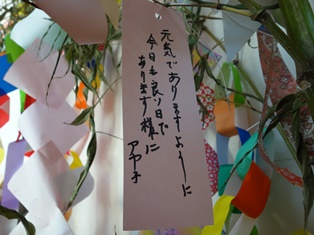 元気でありますように
今日も良い日で
あります様に
アヤ子